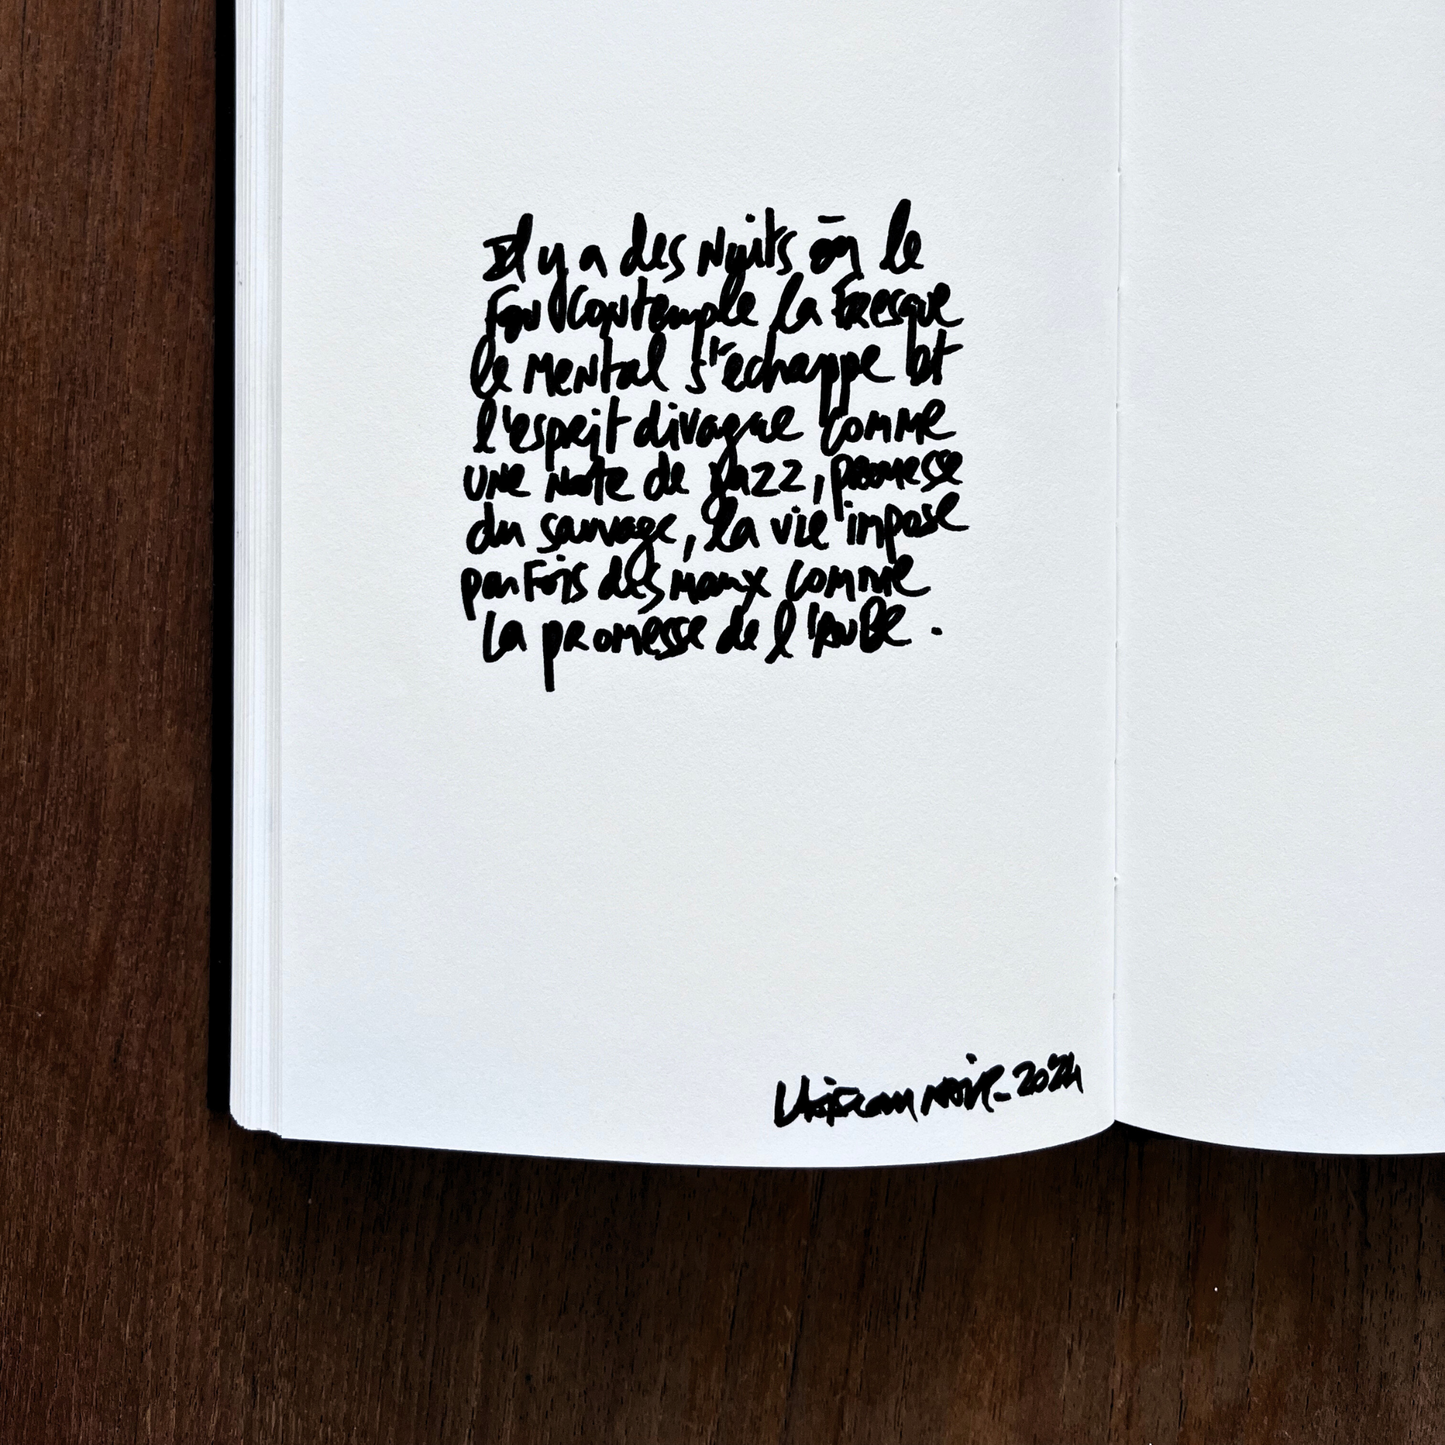 Il y a des Nuits où le
Fou contemple la Fresque
le Mental s'échappe et
l'esprit divague comme
une Note de Jazz, promesse
du sauvage, la vie impose
parfois des maux comme
la promesse de l'Aube.
Noir_2024